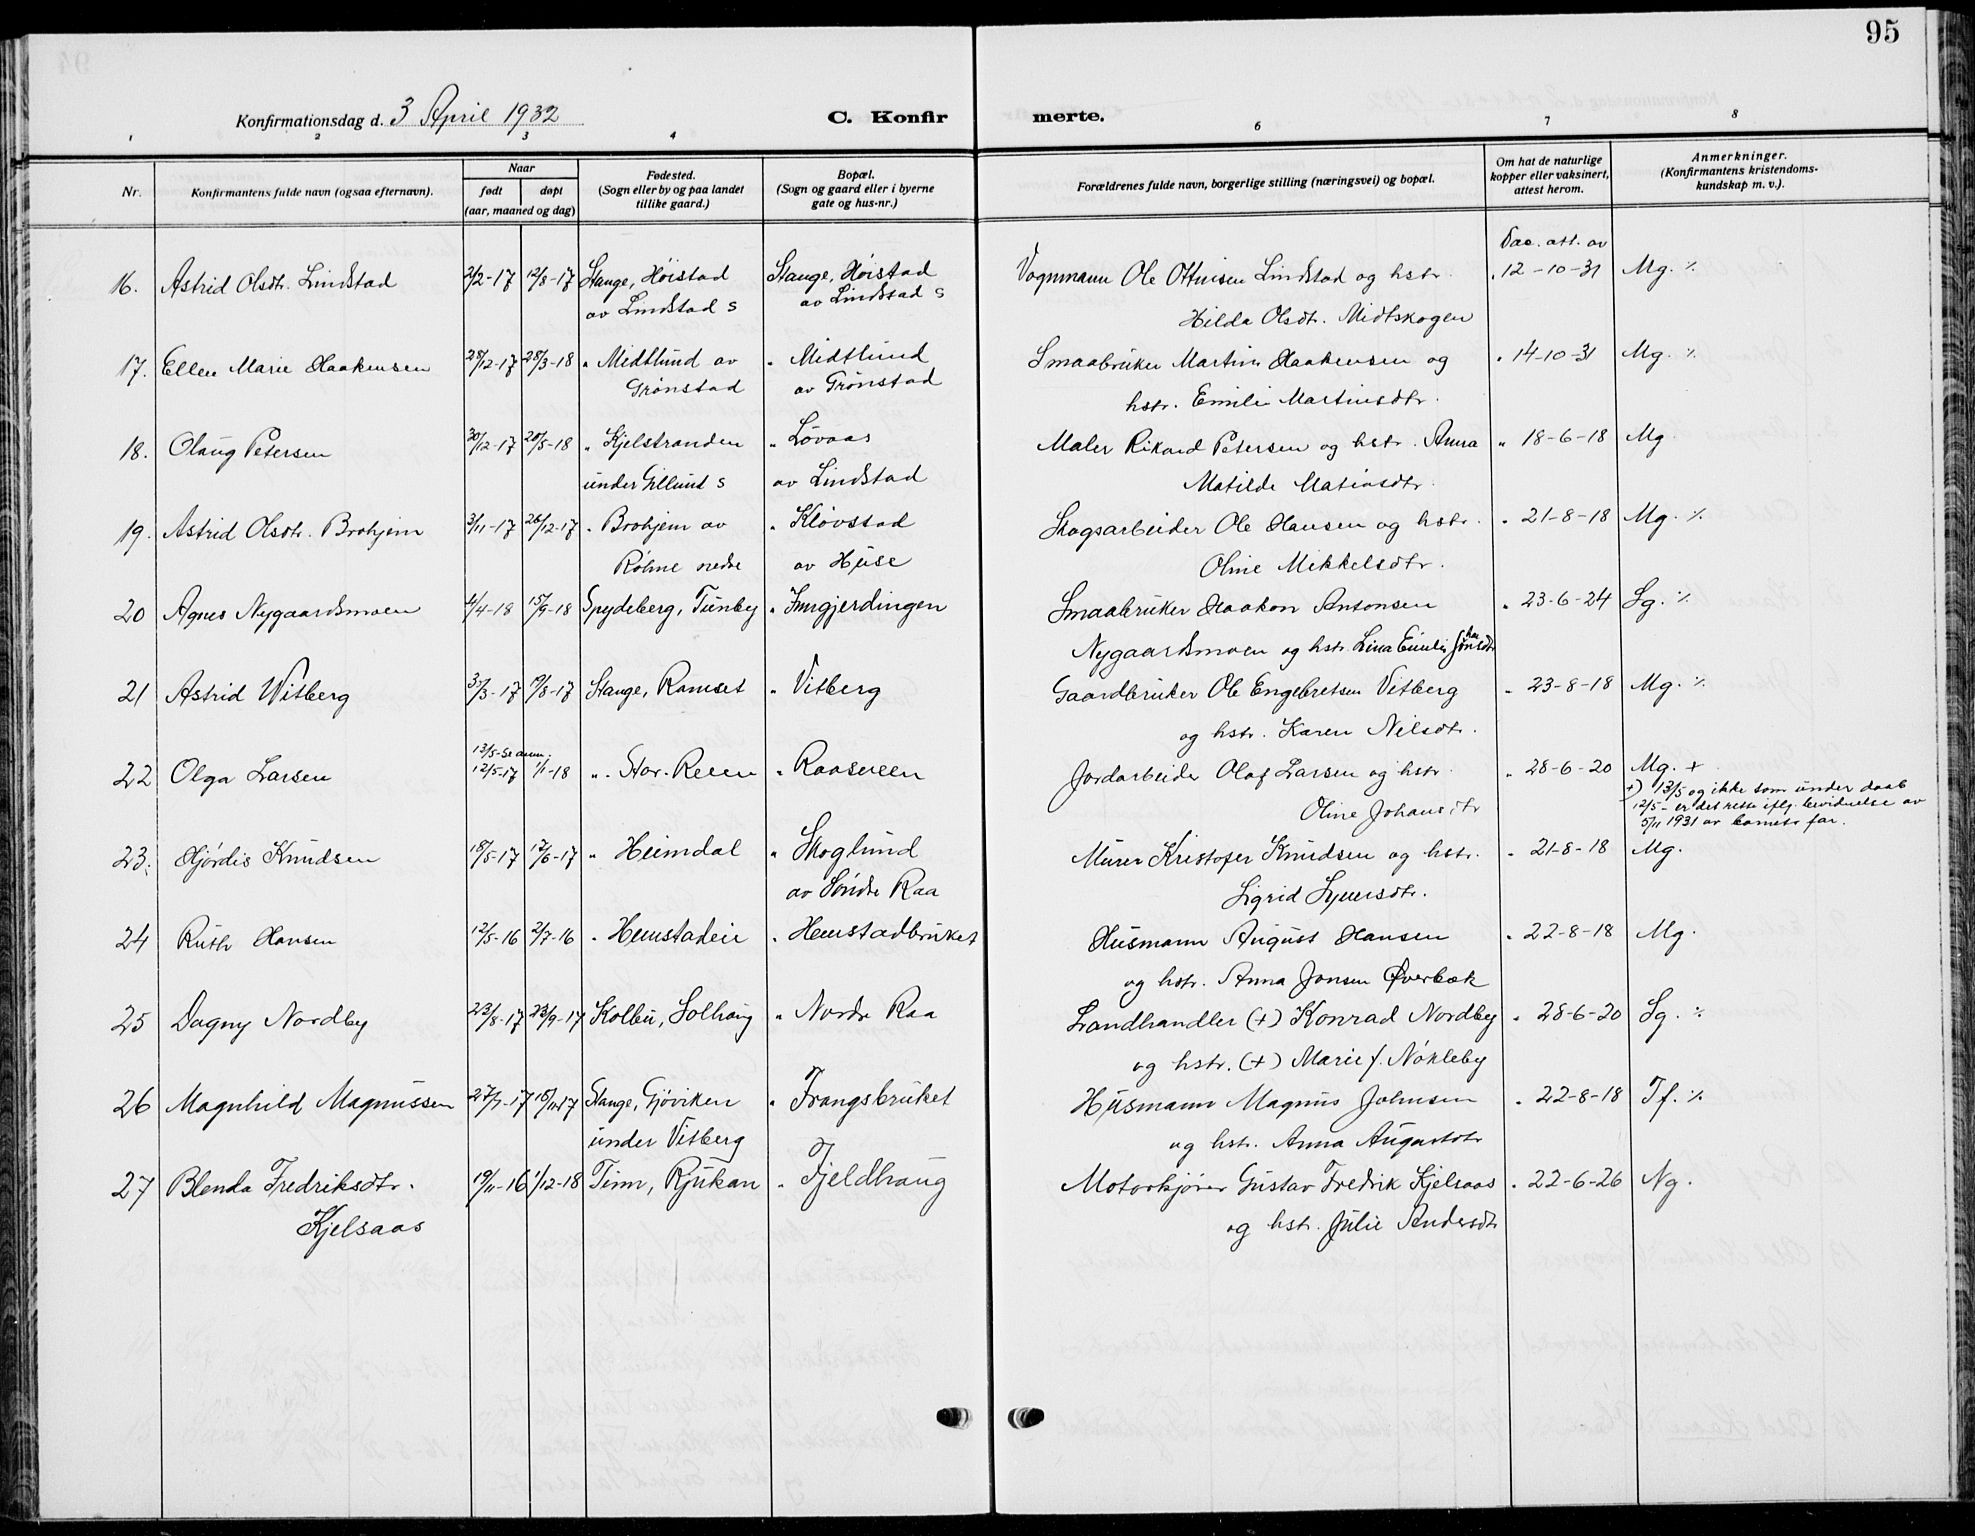 95
Konfirmationsdag d. 3 April 1932
C. Konfir merte.
1 2 3 4 6 7 8
Nr.
Konfirmantens fulde navn (ogsaa efternavn).
Naar
født døpt
(aar, maaned og dag)
Fødested.
(Sogn eller by og paa landet
tillike gaard.)
Bopæl.
(Sogn og gaard eller i byerne
gate og hus-nr.)
Forældrenes fulde navn, borgerlige stilling (næringsvei) og bopæl.
Om hat de naturlige
kopper eller vaksinert,
attest herom.
Anmerkninger.
(Konfirmantens kristendoms-
kundskap m. v.).
Vac. att. av
16. Astrid Olsdtr. Lindstad 2/2-17 12/8-17 Stange, Høistad Stange, Høistad Vognmann Ole Ottinsen Lindstad og hstr. " 12-10-31 Mg. ٪
av Lindstad s av Lindstad s Hilda Olsdt. Midtskogen
17. Ellen Marie Haakensen 28/12-17 28/3-18 " Midtlund av " Midtlund Smaabruker Martin Haakensen og " 14-10-31 Mg. ٪
Grønstad av Grønstad hstr. Emilie Martinsdtr.
18. Olaug Petersen 30/12-17 20/5-18 " Kjelstranden " Løvaas Maler Rikard Petersen og hstr. Anna " 18-6-18 Mg
under Gillund s av Lindstad Matilde Matiasdtr.
19. Astrid Olsdtr. Brohjem 3/11-17 26/12-17 " Brohjem av " Kløvstad Skogsarbeider Ole Hansen og hstr. " 21-8-18 Mg. ٪
Røhne nedre av Huse Oline Mikkelsdtr.
20 Agnes Nygaardsmoen 4/4-18 15/9-18 Spydeberg, Tunby " Imgjerdingen Smaabruker Haakon Antonsen " 23-6-24 Sg. ٪
Nygaardsmoen og hstr. Lina Emilie Johansdtr
21 Astrid Witberg 3/3-17 19/8-17 Stange, Romset " Vitberg Gaardbruker Ole Engebretsen Vitberg " 23-8-18 Mg. ٪
og hstr. Karen Nilsdtr.
13/5-Se anm.
22 Olga Larsen 12/5-17 1/1-18 " Stor-Reen " Raaseveen Jordarbeider Olaf Larsen og hstr. " 28-6-20 Mg. +
Oline Johansdtr
+) 13/5 og ikke som under daab
12/5 - er det rette iflg. bevidnelse av
5/11 1931 av barnets far.
23. Hjørdis Knudsen 18/5-17 17/6-17 " Heimdal " Skoglund Murer Kristofer Knudsen og hstr. " 21-8-18 Mg.
av Søndre Raa Sigrid Syversdtr.
24 Ruth Hansen 12/5-16 2/7-16 " Hemstadeie " Hemstadbruket Husmann August Hansen " 22-8-18 Mg.
og hstr. Anna Jonsen Øverbæk
25 Dagny Nordby 23/8-17 23/9-17 Kolbu, Solhaug " Nordre Raa Landhandler (+) Konrad Nordby " 28-6-20 Sg. ٪
og hstr. (+) Marie f. Nøkleby
26 Magnhild Magnussen 27/7-17 18/11-17 Stange, Gjøviken " Frangsbruket Husmann Magnus Johnsen " 22-8-18 Tf. ٪
under Vitberg og hstr. Anna Augustdtr
27 Blenda Fredriksdtr. 19/11-16 1/12-18 Tinn, Rjukan " Fjeldhaug Motorkjører Gustav Fredrik Kjelsaas " 22-6-26 Ng.
Kjelsaas og hstr. Julie Andersdtr